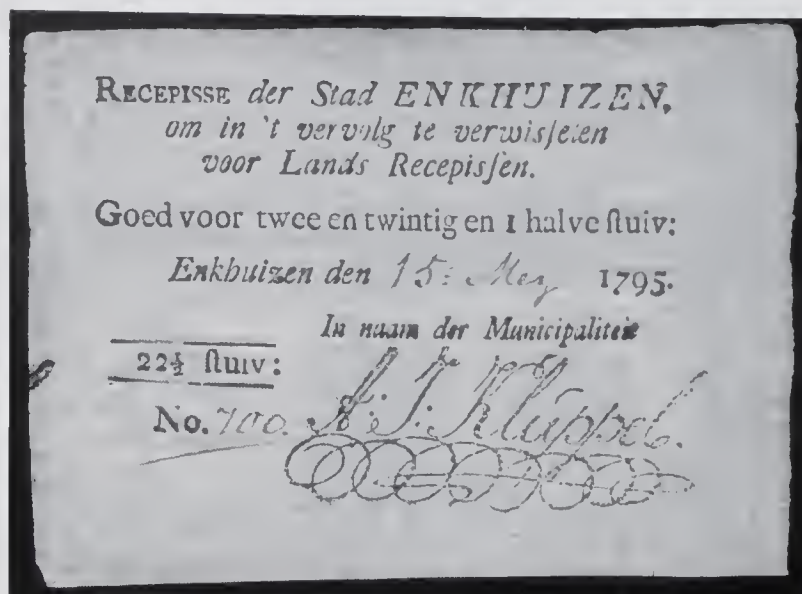 RECEPISSE der Stad ENKHUIZEN,
om in 't vervolg te verwisselen
voor Lands Recepissen.
Goed voor twee en twintig en 1 halve stuiv:
Enkhuizen den 15: Mey 1795.
In naam der Municipaliteit
22½ stuiv:
No. 700. A: J: Kluppel.